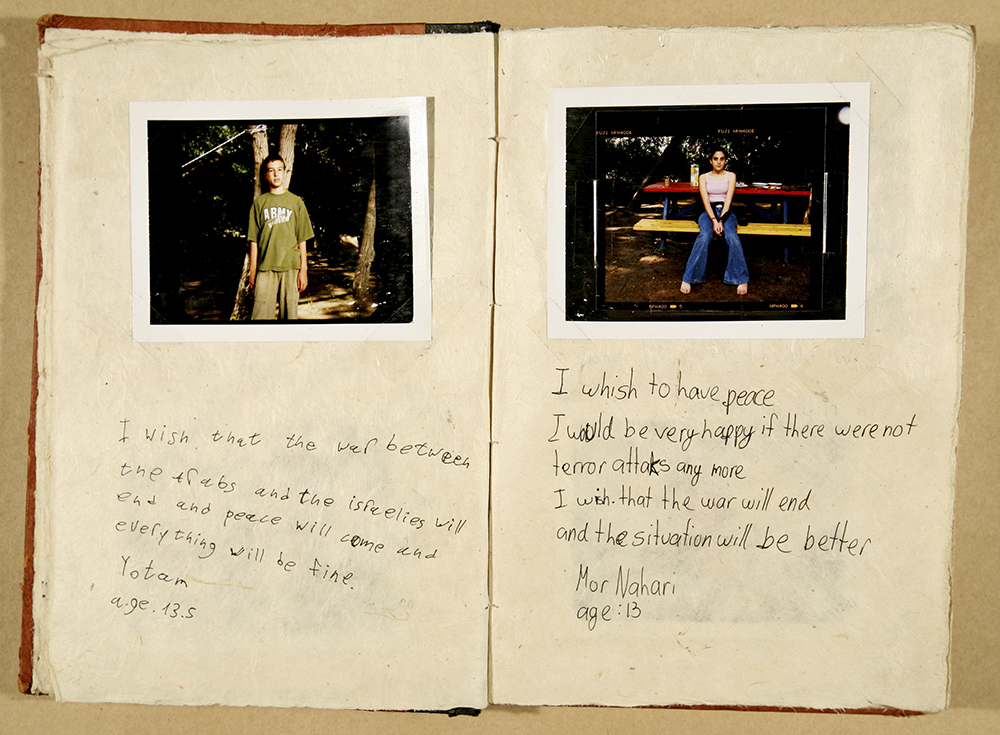 ARMY
I wish that the war between
the arabs and the israelies will
end and peace will come and
everything will be fine.
Yotam
age.13.5
FUJI HPH400S FUJI HPH400S
HPH400 5 HPH400 6
I whish to have peace
I would be very happy if there were not
terror attaks any more
I wish that the war will end
and the situation will be better
Mor Nahari
age:13